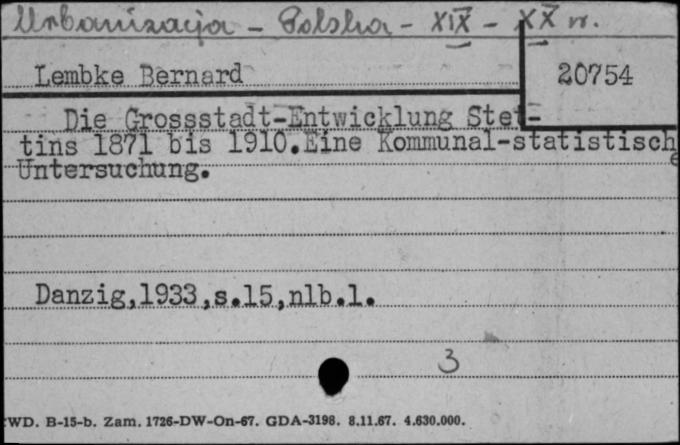 Urbanizacja - Polska - XIX - XX w.
Lembke Bernard
20754
Die Grossstadt-Entwicklung Stet-
tins 1871 bis 1910.Eine Kommunal-statistisch
e
Untersuchung.
Danzig,1933,s.15,nlb.1.
3
WD. B-15-b. Zam. 1726-DW-On-67. GDA-3198. 8.11.67. 4.630.000.